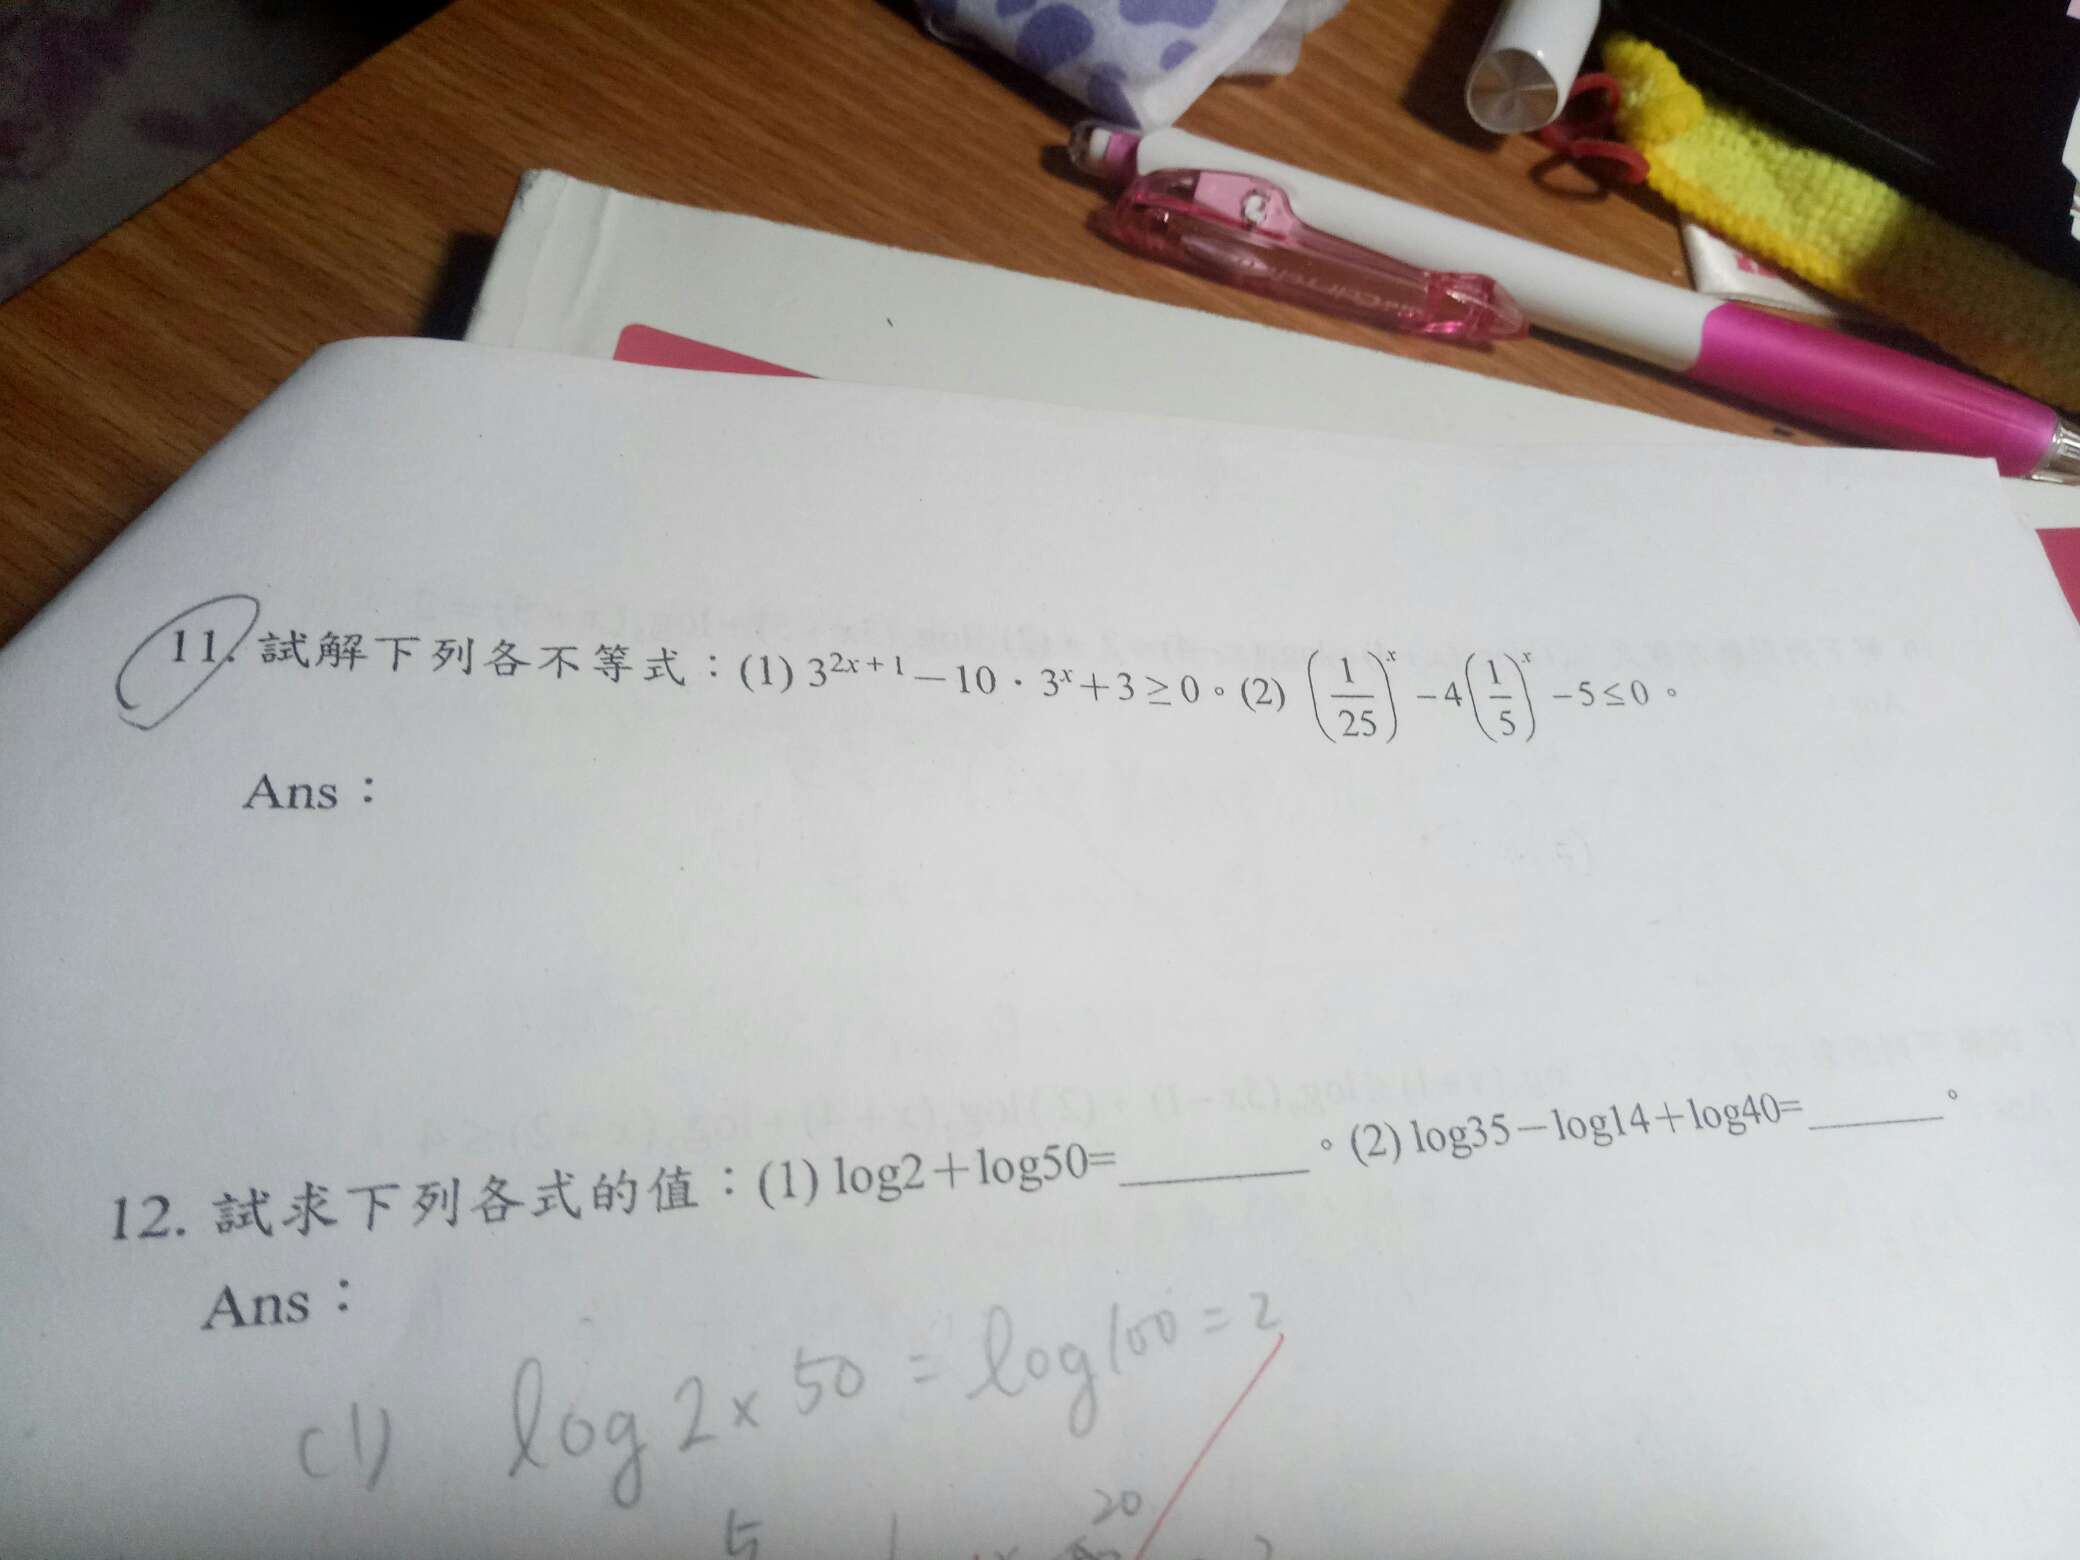 11. 試解下列各不等式：(1) 3²ˣ⁺¹－10．3ˣ＋3≥0。(2) (1/25)ˣ－4(1/5)ˣ－5≤0。
Ans：
12. 試求下列各式的值：(1) log2＋log50=______。(2) log35－log14＋log40=______。
Ans：
(1) log 2×50 = log100 = 2
20
5